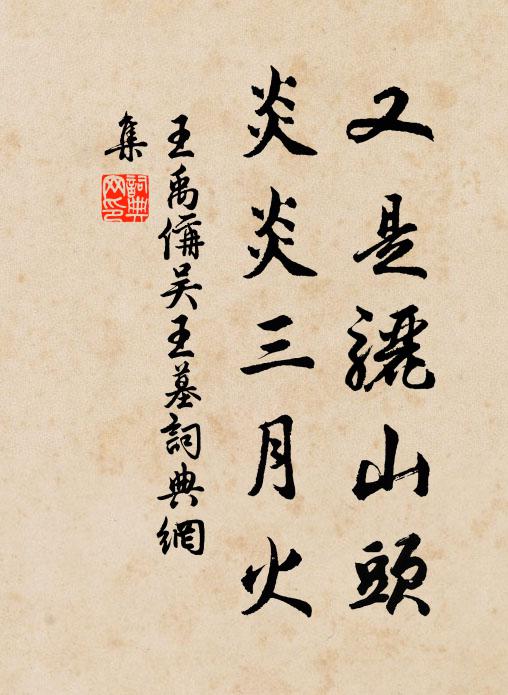 又是驪山頭
炎炎三月火
王禹偁吴王墓詞典網
集
詞典
网印